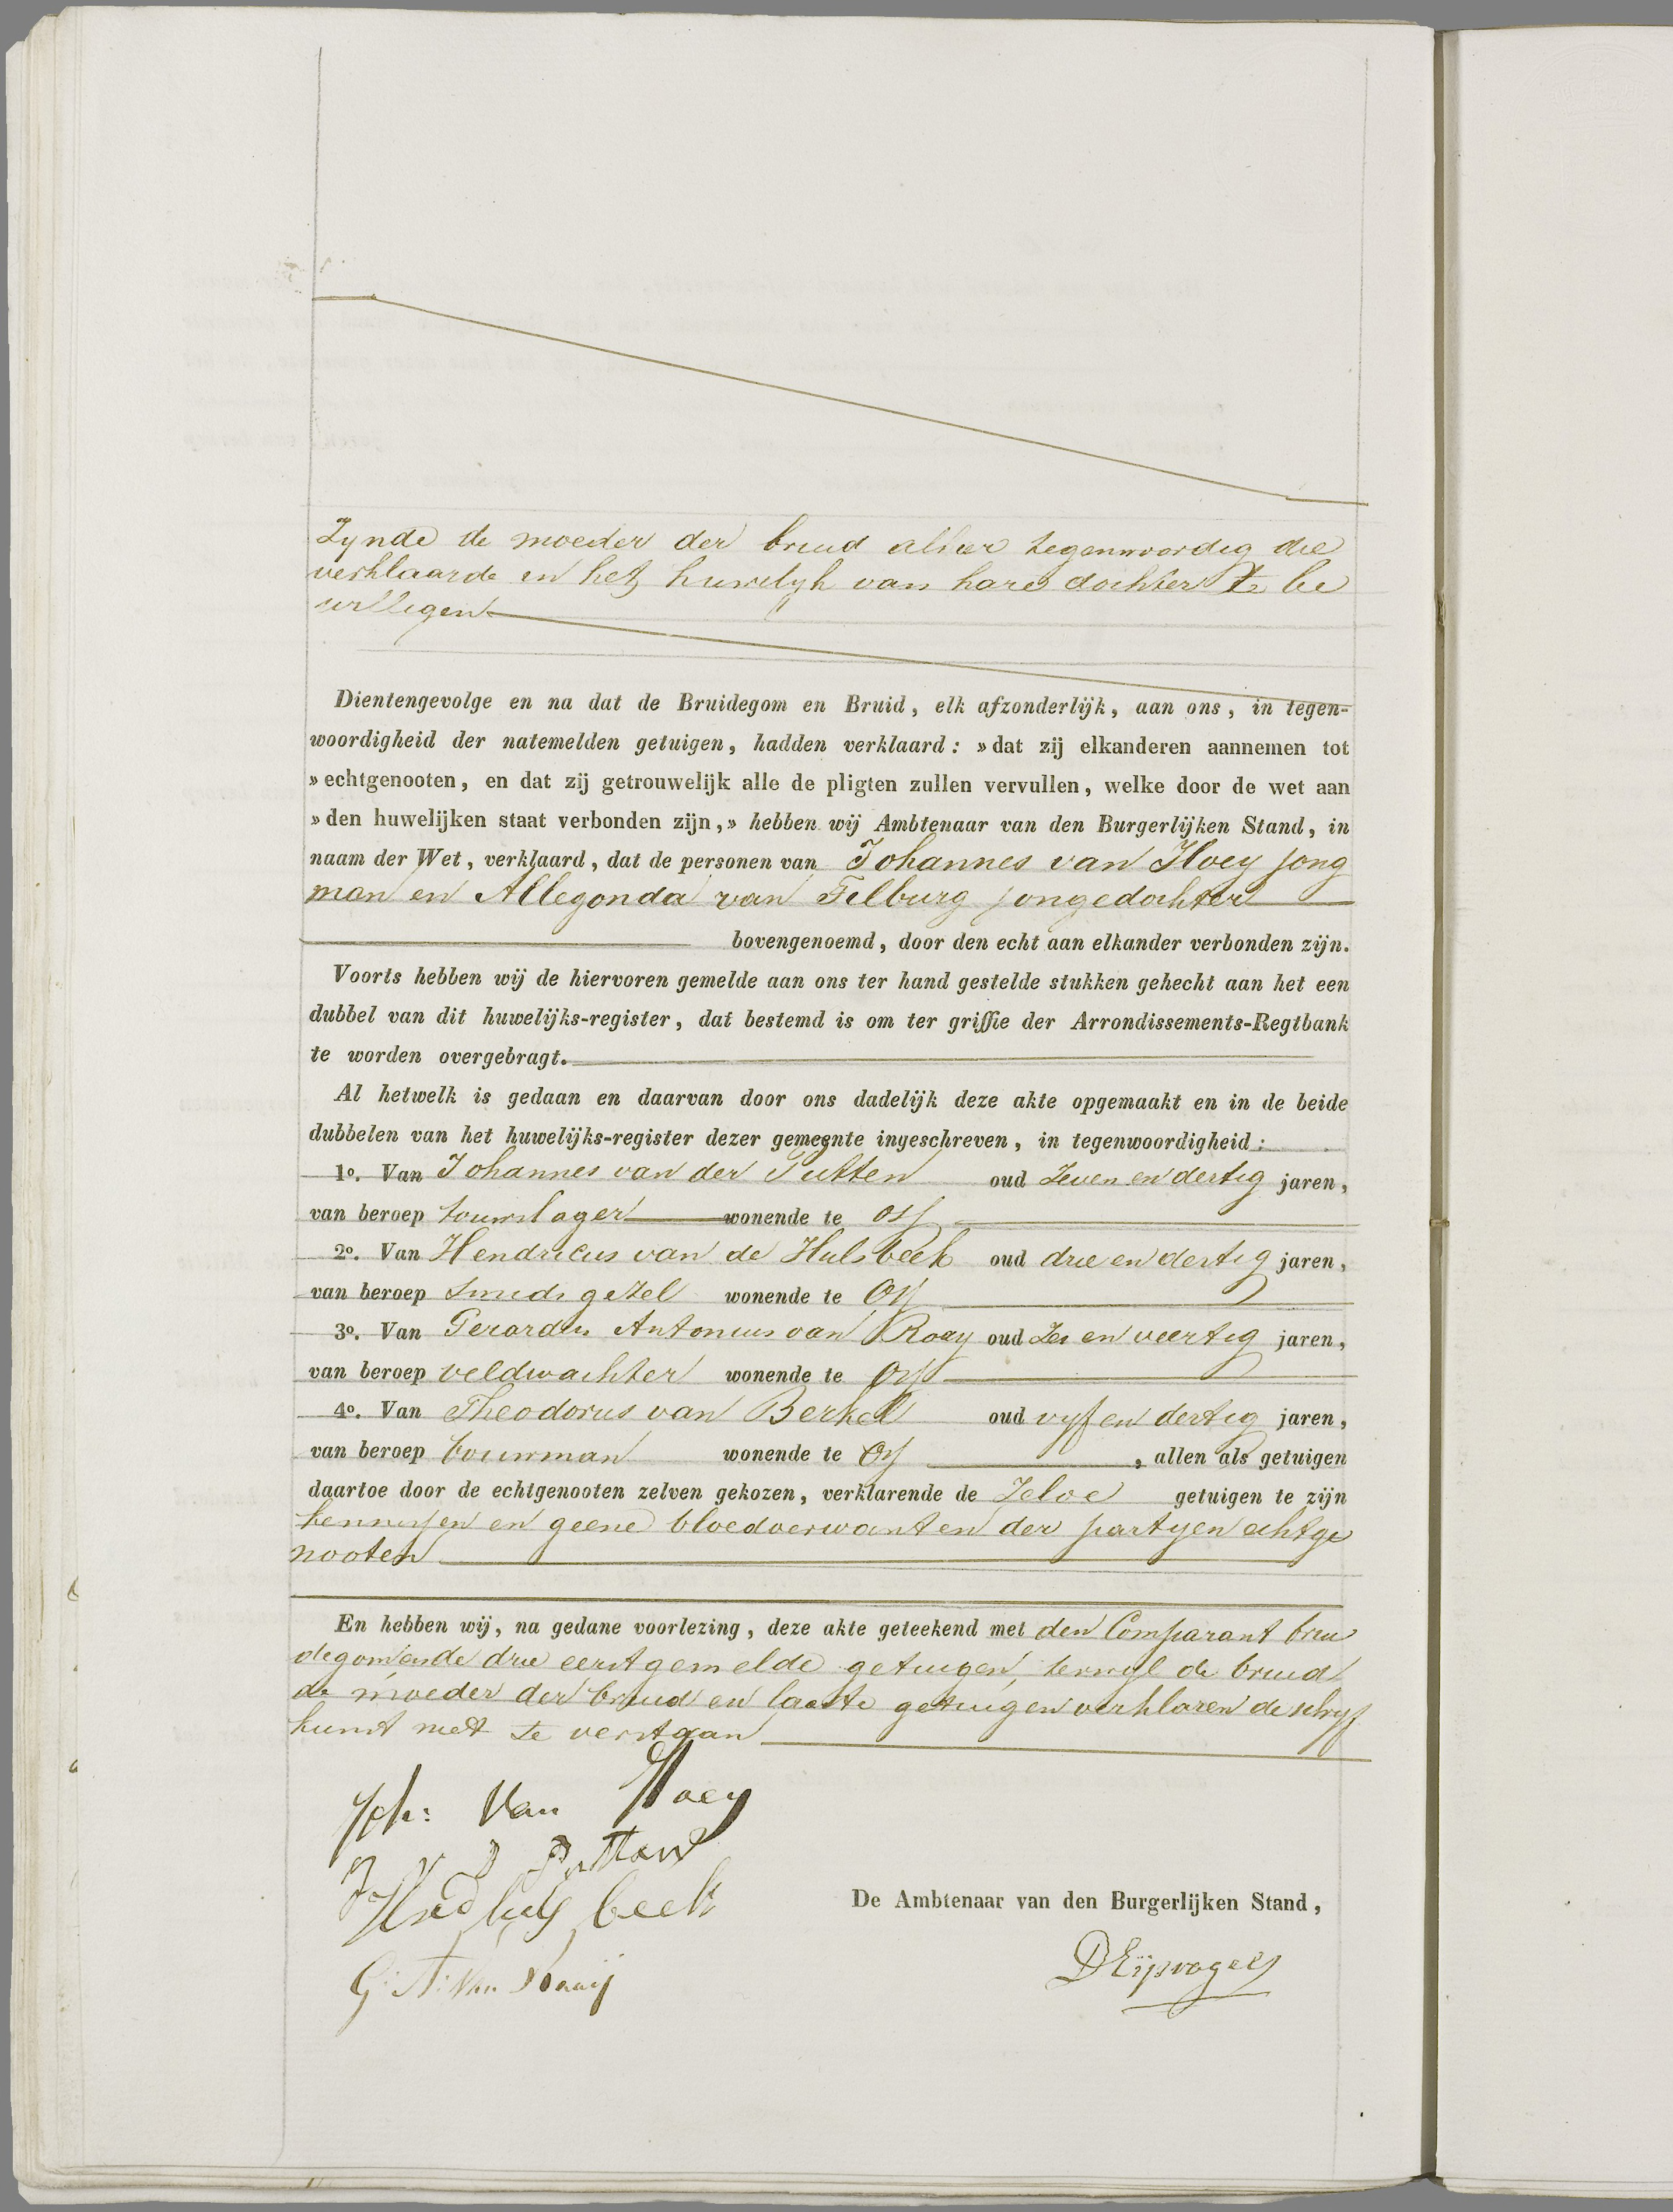 Zynde de moeder der bruid alhier tegenwoordig die
verklaarde in het huwelyk van hare dochter te be
willigen
Dientengevolge en na dat de Bruidegom en Bruid, elk afzonderlijk, aan ons, in tegen-
woordigheid der natemelden getuigen, hadden verklaard: »dat zij elkanderen aannemen tot
»echtgenooten, en dat zij getrouwelijk alle de pligten zullen vervullen, welke door de wet aan
»den huwelijken staat verbonden zijn,» hebben wij Ambtenaar van den Burgerlijken Stand, in
naam der Wet, verklaard, dat de personen van Johannes van Hoey jong
man en Allegonda van Tilburg jongedochter
bovengenoemd, door den echt aan elkander verbonden zijn.
Voorts hebben wij de hiervoren gemelde aan ons ter hand gestelde stukken gehecht aan het een
dubbel van dit huwelijks-register, dat bestemd is om ter griffie der Arrondissements-Regtbank
te worden overgebragt.
Al hetwelk is gedaan en daarvan door ons dadelijk deze akte opgemaakt en in de beide
dubbelen van het huwelijks-register dezer gemeente ingeschreven, in tegenwoordigheid:
1o. Van Johannes van der Putten oud Zeven en dertig jaren,
van beroep touwslager wonende te Oss
2o. Van Hendricus van de Hulsbeek oud drie en dertig jaren,
van beroep Smids gezel wonende te Oss
3o. Van Gerardus Antonius van Rooy oud Zes en veertig jaren,
van beroep veldwachter wonende te Oss
4o. Van Theodorus van Berkel oud vyf en dertig jaren,
van beroep bouwman wonende te Oss, allen als getuigen
daartoe door de echtgenooten zelven gekozen, verklarende de Zelve getuigen te zijn
kennissen en geene bloedverwanten der partyen echtge
nooten
En hebben wij, na gedane voorlezing, deze akte geteekend met den Comparant brui
degom en de drie eerstgemelde getuigen, terwyl de bruid
de moeder der bruid en laaste getuigen verklaren de schryf
kunst niet te verstaan
Joh: Van Hoey
J V D Putten
H vd hulsbeek
G: A: Van Rooij
De Ambtenaar van den Burgerlijken Stand,